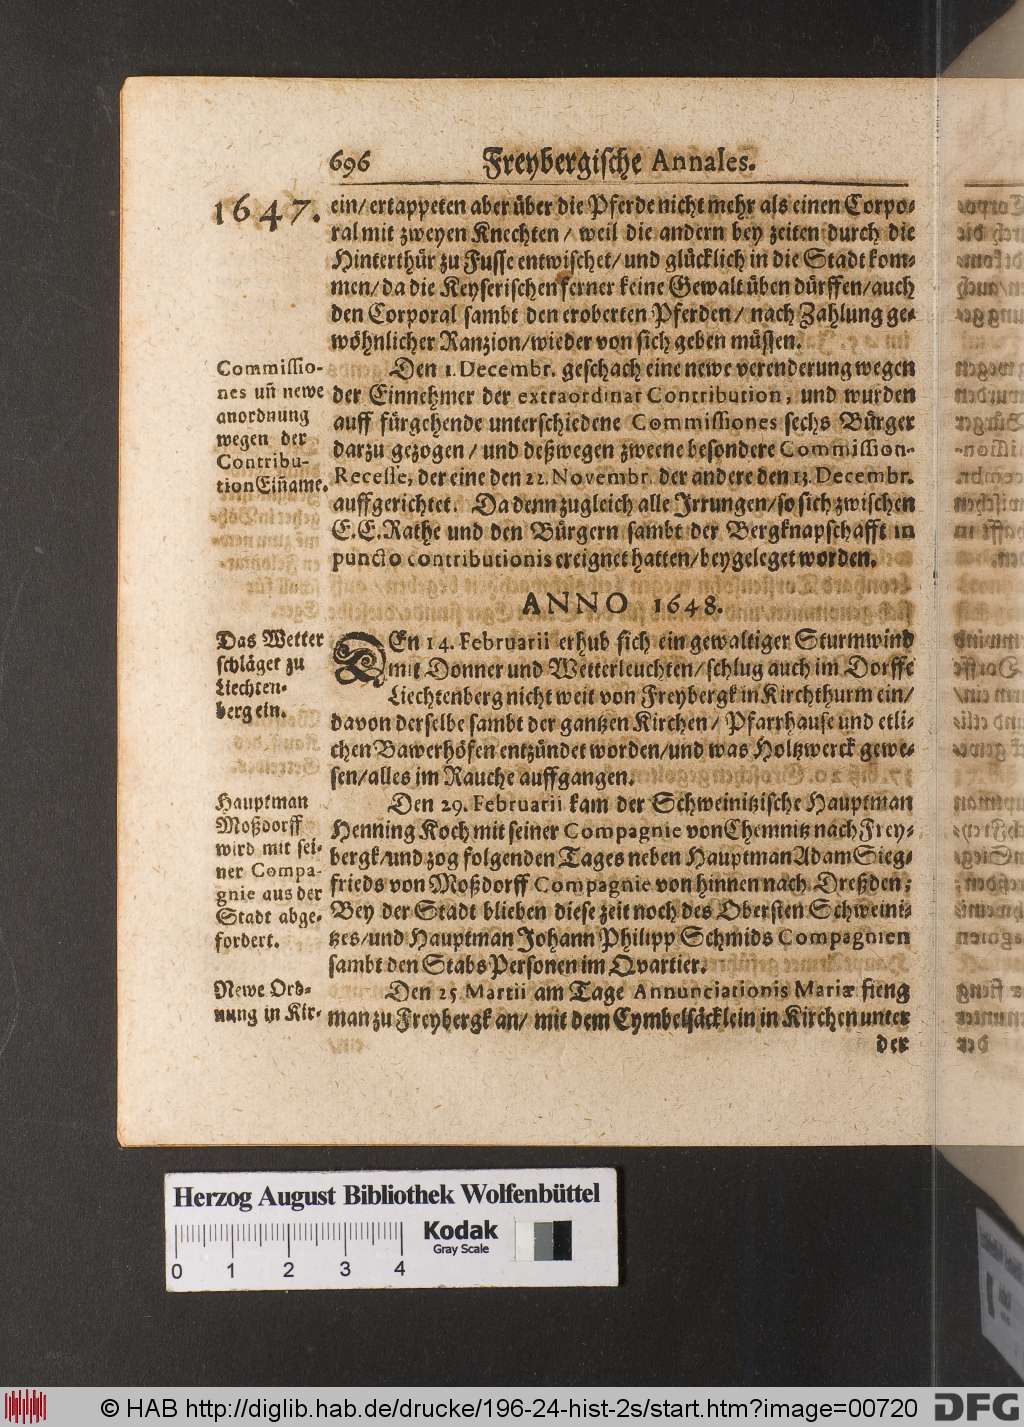 696 Freybergische Annales.
1647.
ein/ ertappeten aber über die Pferde nicht mehr als einen Corpo-
ral mit zweyen Knechten / weil die andern bey zeiten durch die
Hinterthür zu Fusse entwischet/ und glücklich in die Stadt kom-
men/ da die Keyserischen ferner keine Gewalt üben dürffen/ auch
den Corporal sambt den eroberten Pferden / nach Zahlung ge-
wöhnlicher Ranzion/ wieder von sich geben müssen.
Commissio-
nes uñ newe
anordnung
wegen der
Contribu-
tion Eiñame.
Den 1. Decembr. geschach eine newe verenderung wegen
der Einnehmer der extraordinar Contribution, und wurden
auff fürgehende unterschiedene Commissiones sechs Bürger
darzu gezogen / und deßwegen zweene besondere Commission-
Recesse, der eine den 22. Novembr. der andere den 13. Decembr.
auffgerichtet. Da denn zugleich alle Irrungen/ so sich zwischen
E. E. Rathe und den Bürgern sambt der Bergknapschafft in
puncto contributionis ereignet hatten/ beygeleget worden.
ANNO 1648.
Das Wetter
schläget zu
Liechten-
berg ein.
DEn 14. Februarii erhub sich ein gewaltiger Sturmwind
mit Donner und Wetterleuchten/ schlug auch im Dorffe
Liechtenberg nicht weit von Freybergk in Kirchthurm ein/
davon derselbe sambt der gantzen Kirchen / Pfarrhause und etli-
chen Bawerhöfen entzündet worden/ und was Holtzwerck gewe-
sen/ alles im Rauche auffgangen.
Hauptman
Moßdorff
wird mit sei-
ner Compa-
gnie aus der
Stadt abge-
fordert.
Den 29. Februarii kam der Schweinitzische Hauptman
Henning Koch mit seiner Compagnie von Chemnitz nach Frey-
bergk/ und zog folgenden Tages neben Hauptman Adam Sieg-
frieds von Moßdorff Compagnie von hinnen nach Dreßden;
Bey der Stadt blieben diese zeit noch des Obersten Schweini-
tzes/ und Hauptman Johann Philipp Schmids Compagnien
sambt den Stabs Personen im Qvartier.
Newe Ord-
nung in Kir-
Den 25 Martii am Tage Annunciationis Mariæ fieng
man zu Freybergk an/ mit dem Cymbelsäcklein in Kirchen unter
der
Herzog August Bibliothek Wolfenbüttel
Kodak
Gray Scale
0 1 2 3 4
© HAB http://diglib.hab.de/drucke/196-24-hist-2s/start.htm?image=00720
DFG